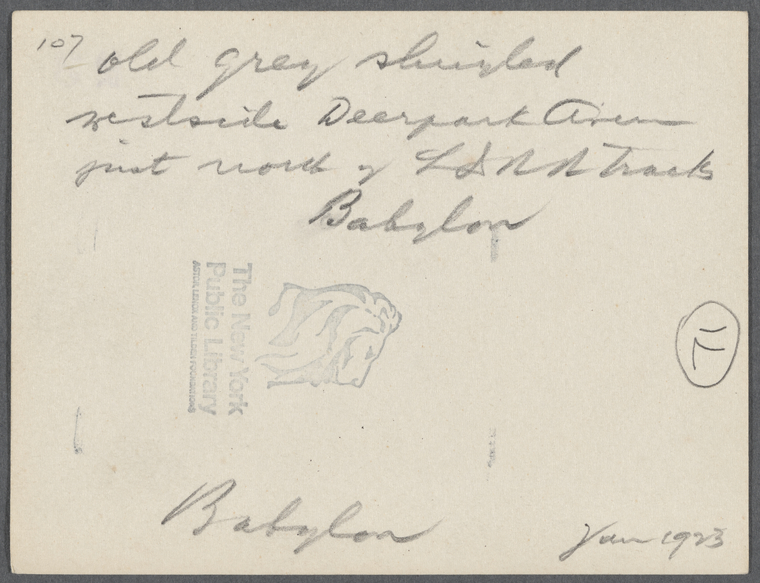 107
old grey shingled
westside Deerpark Aven
just north of L I R R Tracks
Babylon
The New York
Public Library
ASTOR, LENOX AND TILDEN FOUNDATIONS
Babylon
Jan 1923